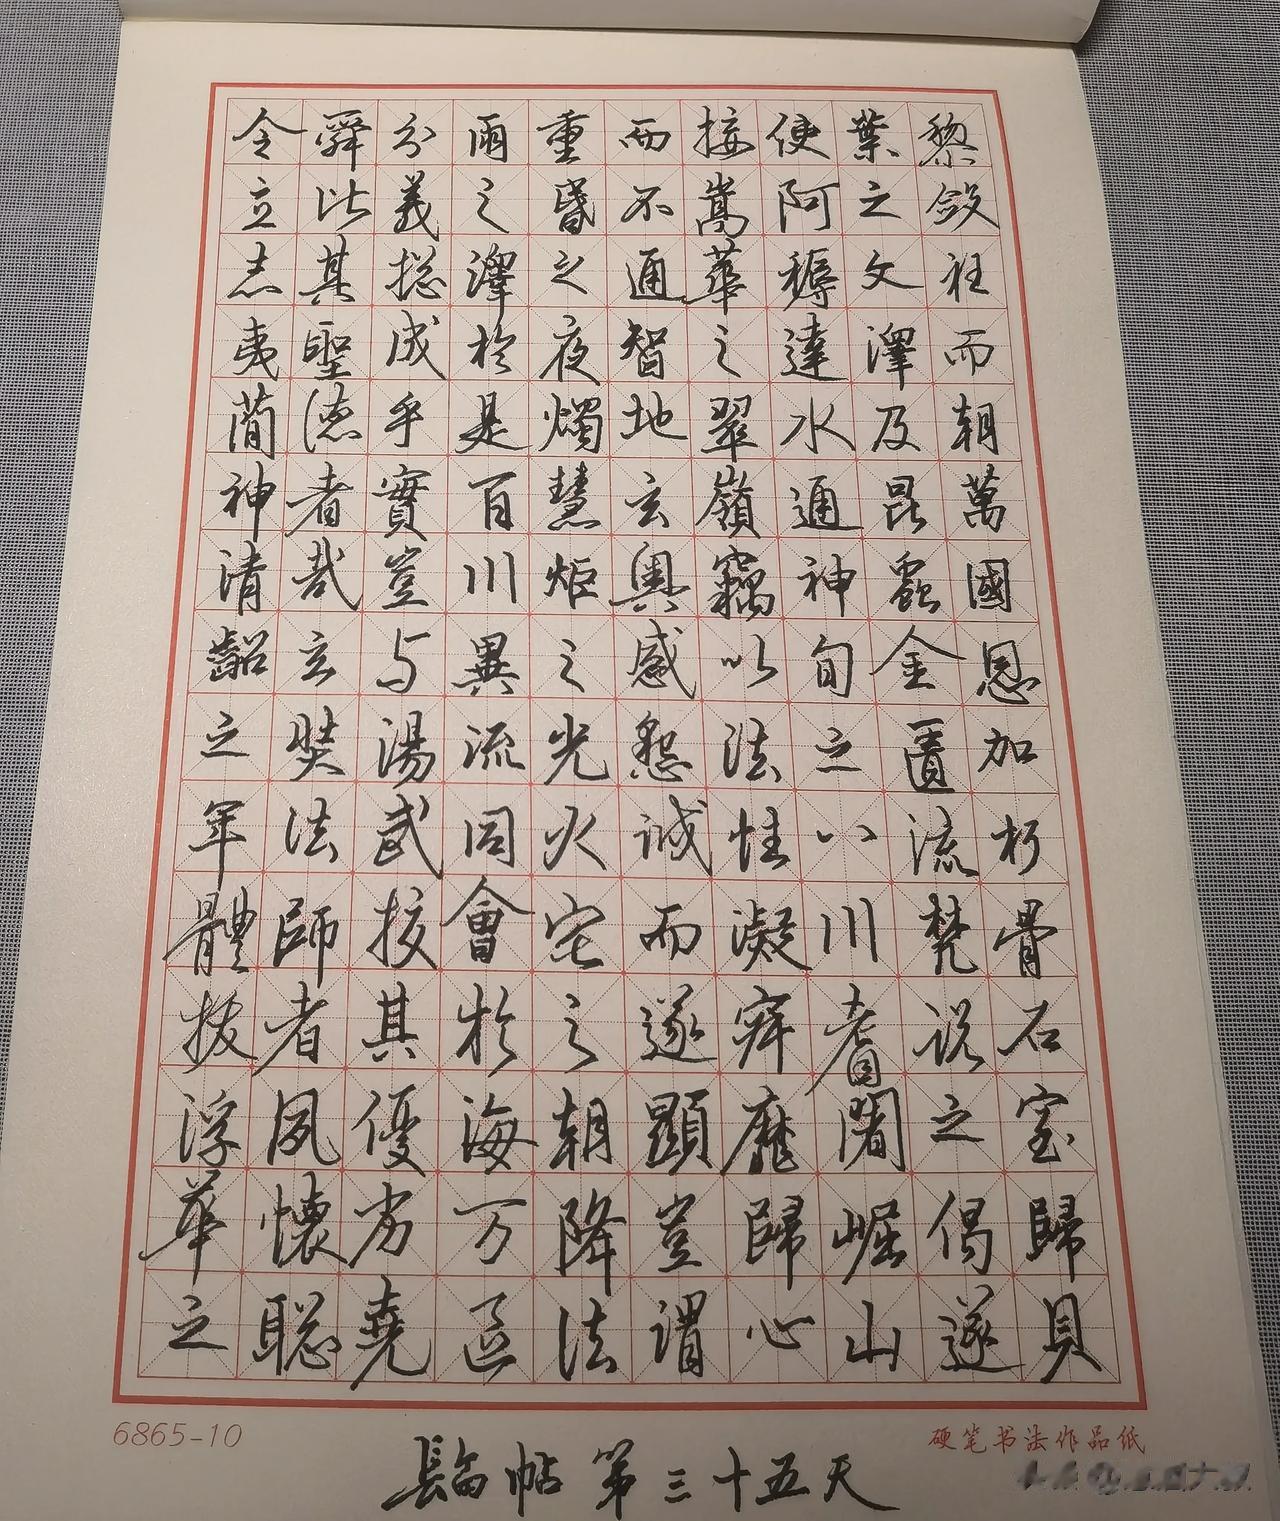 黎斂衽而朝萬國恩加朽骨石室歸貝
葉之文澤及昆蟲金匱流梵説之偈遂
使阿耨達水通神甸之八川耆闍崛山
接嵩華之翠嶺竊以法性凝寂靡歸心
而不通智地玄奧感懇誠而遂顯豈謂
重昏之夜燭慧炬之光火宅之朝降法
雨之澤於是百川異流同會於海万區
分義揔成乎實豈与湯武挍其優劣堯
舜比其聖德者哉玄奘法師者夙懷聡
令立志夷簡神清齠之年體拔浮華之
6865-10
硬笔书法作品纸
帖第三十五天